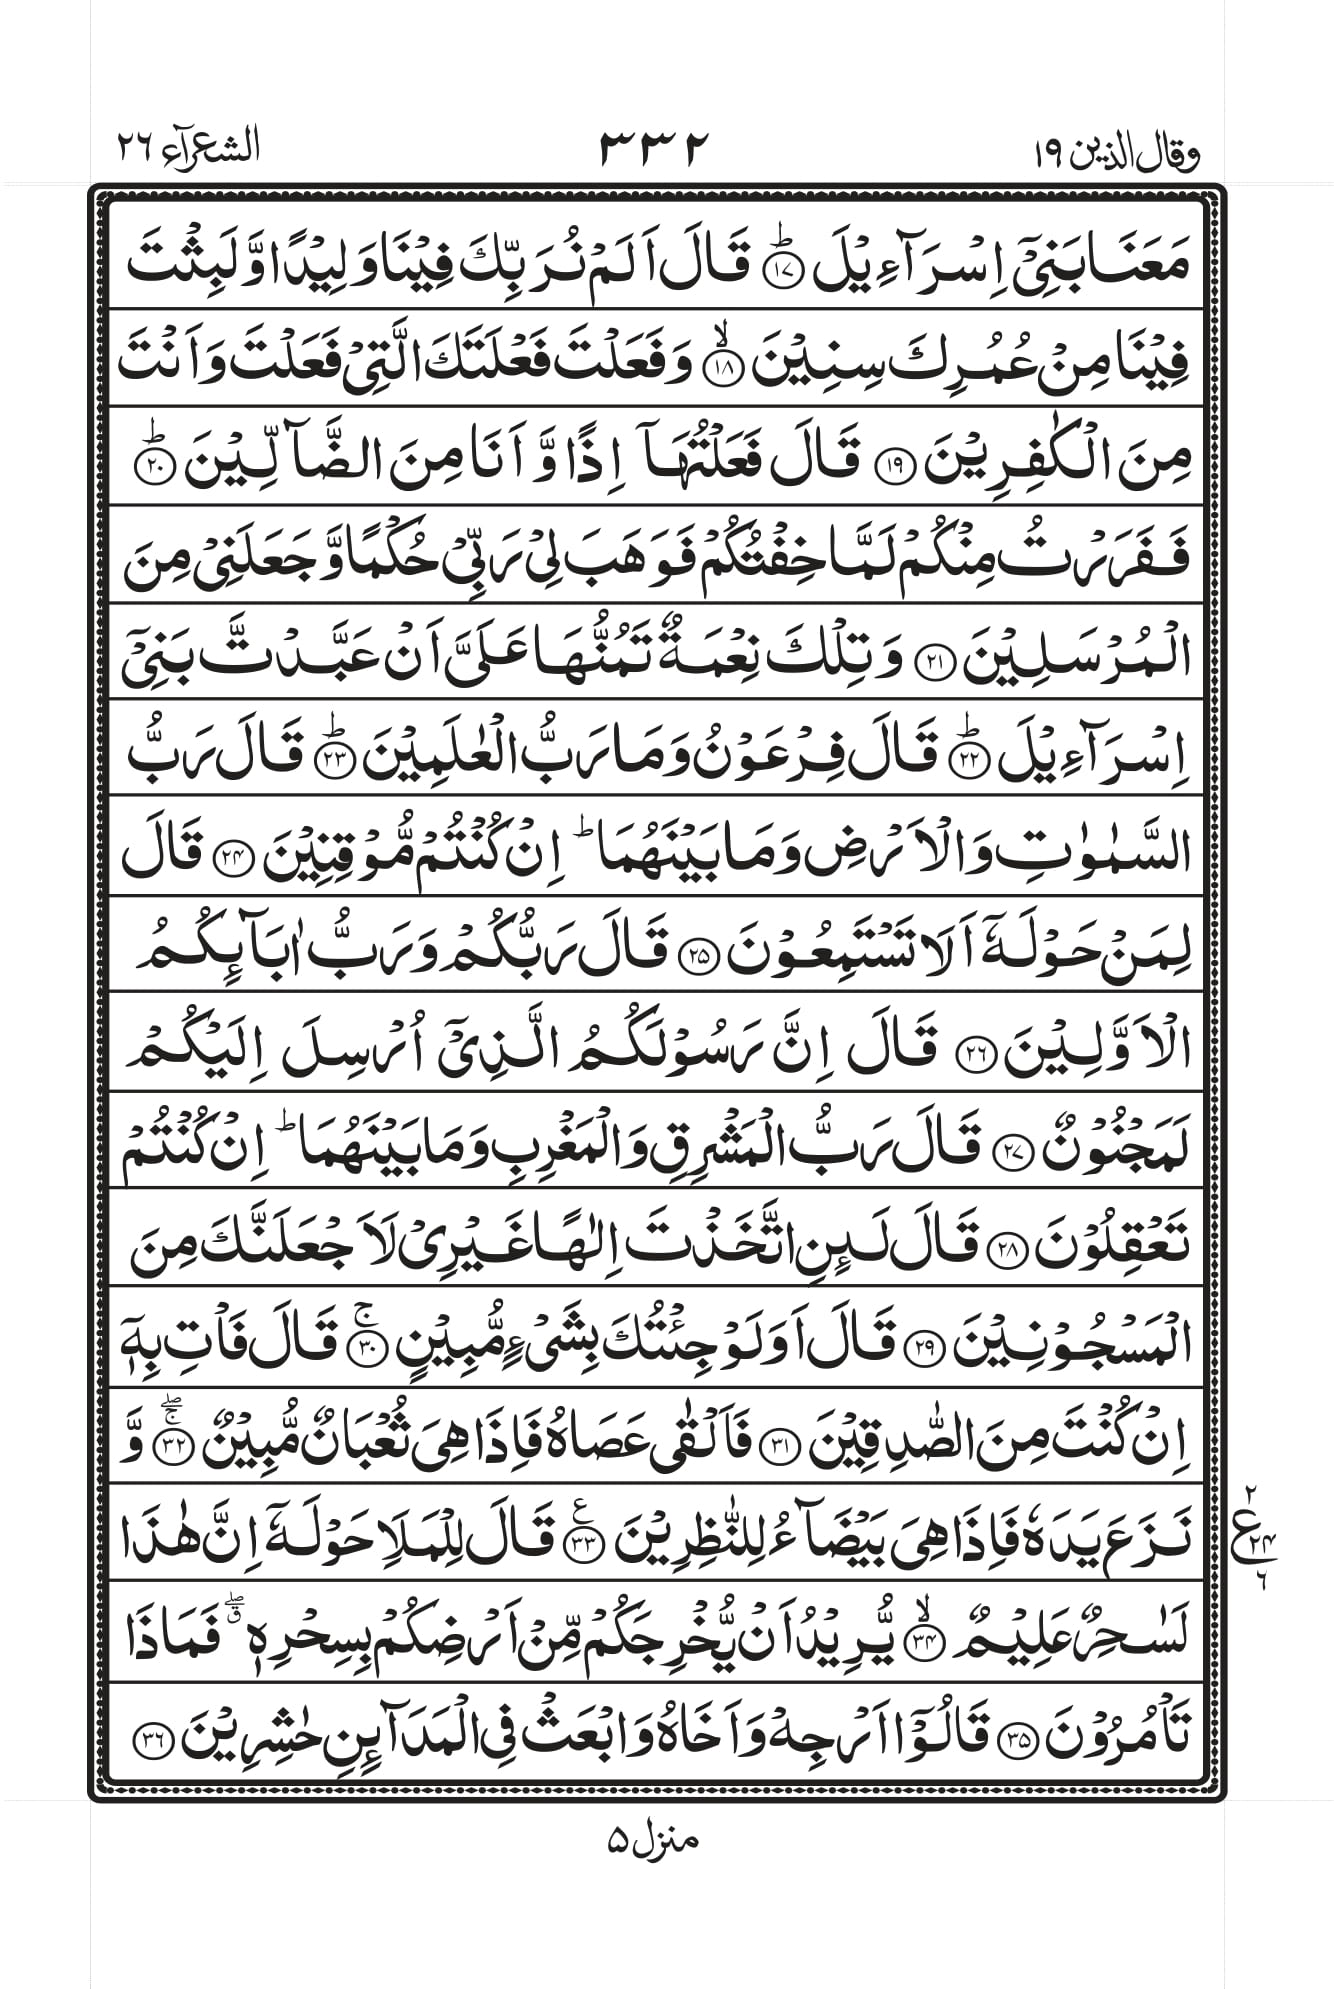 وقال الذين ١٩ ٣٣٢ الشعرآء ٢٦
مَعَنَا بَنِىْۤ اِسْرَآءِيْلَ ؕ‏ ﴿۱۷﴾ قَالَ اَلَمْ نُرَبِّكَ فِيْنَا وَلِيْدًا وَّلَبِثْتَ
فِيْنَا مِنْ عُمُرِكَ سِنِيْنَ ۙ‏ ﴿۱۸﴾ وَفَعَلْتَ فَعْلَتَكَ الَّتِىْ فَعَلْتَ وَاَنْتَ
مِنَ الْكٰفِرِيْنَ ﴿۱۹﴾ قَالَ فَعَلْتُهَاۤ اِذًا وَّاَنَا مِنَ الضَّآلِّيْنَ ؕ‏ ﴿۲۰﴾
فَفَرَرْتُ مِنْكُمْ لَمَّا خِفْتُكُمْ فَوَهَبَ لِىْ رَبِّىْ حُكْمًا وَّجَعَلَنِىْ مِنَ
الْمُرْسَلِيْنَ ﴿۲۱﴾ وَتِلْكَ نِعْمَةٌ تَمُنُّهَا عَلَىَّ اَنْ عَبَّدْتَّ بَنِىْۤ
اِسْرَآءِيْلَ ؕ‏ ﴿۲۲﴾ قَالَ فِرْعَوْنُ وَمَا رَبُّ الْعٰلَمِيْنَ ؕ‏ ﴿۲۳﴾ قَالَ رَبُّ
السَّمٰوٰتِ وَالْاَرْضِ وَمَا بَيْنَهُمَا ؕ اِنْ كُنْتُمْ مُّوْقِنِيْنَ ﴿۲۴﴾ قَالَ
لِمَنْ حَوْلَهٗۤ اَلَا تَسْتَمِعُوْنَ ﴿۲۵﴾ قَالَ رَبُّكُمْ وَرَبُّ اٰبَآئِكُمُ
الْاَوَّلِيْنَ ﴿۲۶﴾ قَالَ اِنَّ رَسُوْلَكُمُ الَّذِىْۤ اُرْسِلَ اِلَيْكُمْ
لَمَجْنُوْنٌ ﴿۲۷﴾ قَالَ رَبُّ الْمَشْرِقِ وَالْمَغْرِبِ وَمَا بَيْنَهُمَا ؕ اِنْ كُنْتُمْ
تَعْقِلُوْنَ ﴿۲۸﴾ قَالَ لَئِنِ اتَّخَذْتَ اِلٰهًا غَيْرِىْ لَاَجْعَلَنَّكَ مِنَ
الْمَسْجُوْنِيْنَ ﴿۲۹﴾ قَالَ اَوَلَوْ جِئْتُكَ بِشَىْءٍ مُّبِيْنٍ ۚ‏ ﴿۳۰﴾ قَالَ فَاْتِ بِهٖۤ
اِنْ كُنْتَ مِنَ الصّٰدِقِيْنَ ﴿۳۱﴾ فَاَلْقٰى عَصَاهُ فَاِذَا هِىَ ثُعْبَانٌ مُّبِيْنٌ ۖۚ‏ ﴿۳۲﴾ وَّ
نَزَعَ يَدَهٗ فَاِذَا هِىَ بَيْضَآءُ لِلنّٰظِرِيْنَ ﴿۳۳﴾ ع قَالَ لِلْمَلَاِ حَوْلَهٗۤ اِنَّ هٰذَا
٢ ع ٢٤ ٦
لَسٰحِرٌ عَلِيْمٌ ۙ‏ ﴿۳۴﴾ يُّرِيْدُ اَنْ يُّخْرِجَكُمْ مِّنْ اَرْضِكُمْ بِسِحْرِهٖ ۖق فَمَاذَا
تَاْمُرُوْنَ ﴿۳۵﴾ قَالُوْۤا اَرْجِهْ وَاَخَاهُ وَابْعَثْ فِى الْمَدَآئِنِ حٰشِرِيْنَ ﴿۳۶﴾
منزل ۵